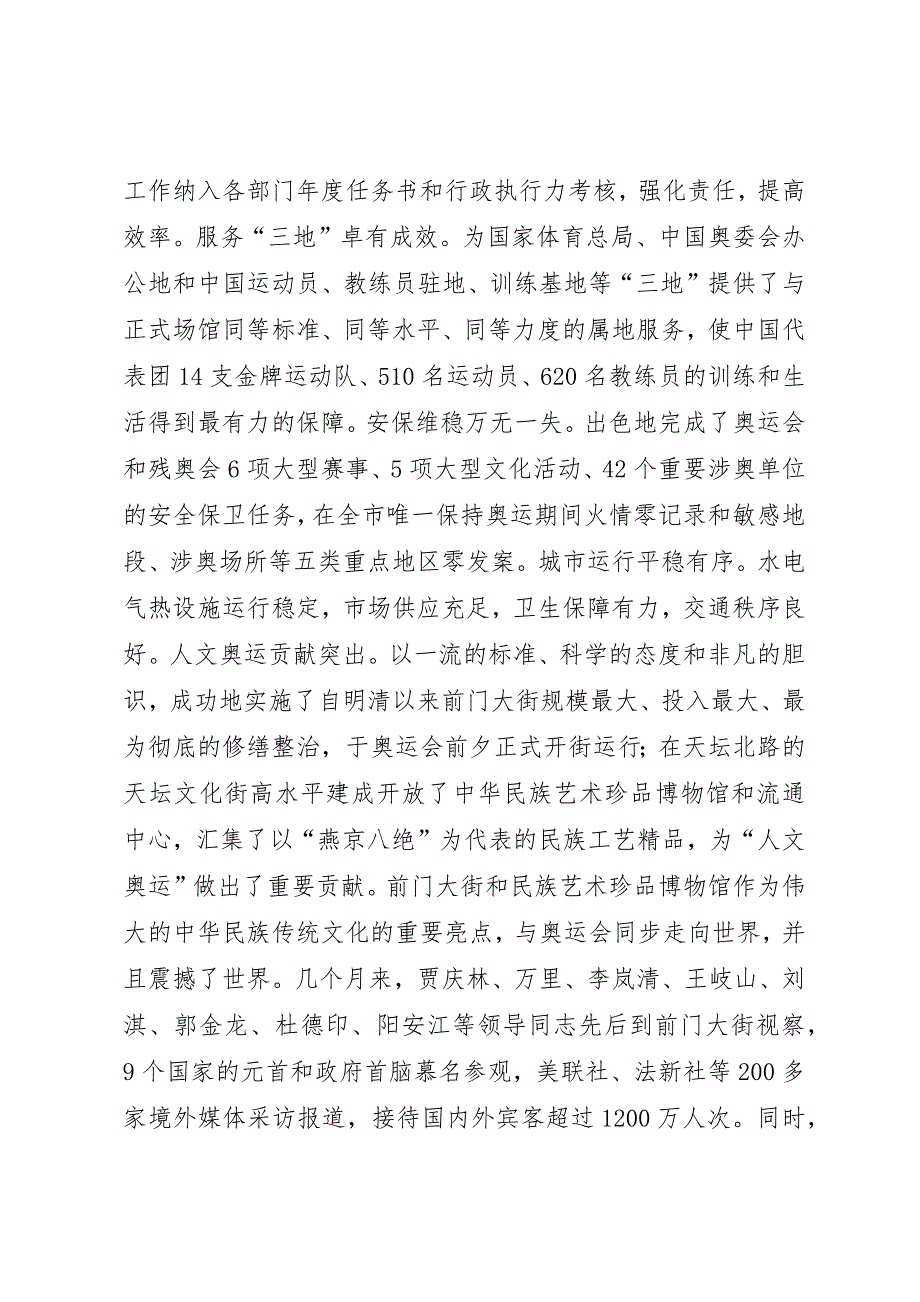 工作纳入各部门年度任务书和行政执行力考核，强化责任，提高
效率。服务“三地”卓有成效。为国家体育总局、中国奥委会办
公地和中国运动员、教练员驻地、训练基地等“三地”提供了与
正式场馆同等标准、同等水平、同等力度的属地服务，使中国代
表团 14 支金牌运动队、510 名运动员、620 名教练员的训练和生
活得到最有力的保障。安保维稳万无一失。出色地完成了奥运会
和残奥会 6 项大型赛事、5 项大型文化活动、42 个重要涉奥单位
的安全保卫任务，在全市唯一保持奥运期间火情零记录和敏感地
段、涉奥场所等五类重点地区零发案。城市运行平稳有序。水电
气热设施运行稳定，市场供应充足，卫生保障有力，交通秩序良
好。人文奥运贡献突出。以一流的标准、科学的态度和非凡的胆
识，成功地实施了自明清以来前门大街规模最大、投入最大、最
为彻底的修缮整治，于奥运会前夕正式开街运行；在天坛北路的
天坛文化街高水平建成开放了中华民族艺术珍品博物馆和流通
中心，汇集了以“燕京八绝”为代表的民族工艺精品，为“人文
奥运”做出了重要贡献。前门大街和民族艺术珍品博物馆作为伟
大的中华民族传统文化的重要亮点，与奥运会同步走向世界，并
且震撼了世界。几个月来，贾庆林、万里、李岚清、王岐山、刘
淇、郭金龙、杜德印、阳安江等领导同志先后到前门大街视察，
9 个国家的元首和政府首脑慕名参观，美联社、法新社等 200 多
家境外媒体采访报道，接待国内外宾客超过 1200 万人次。同时，